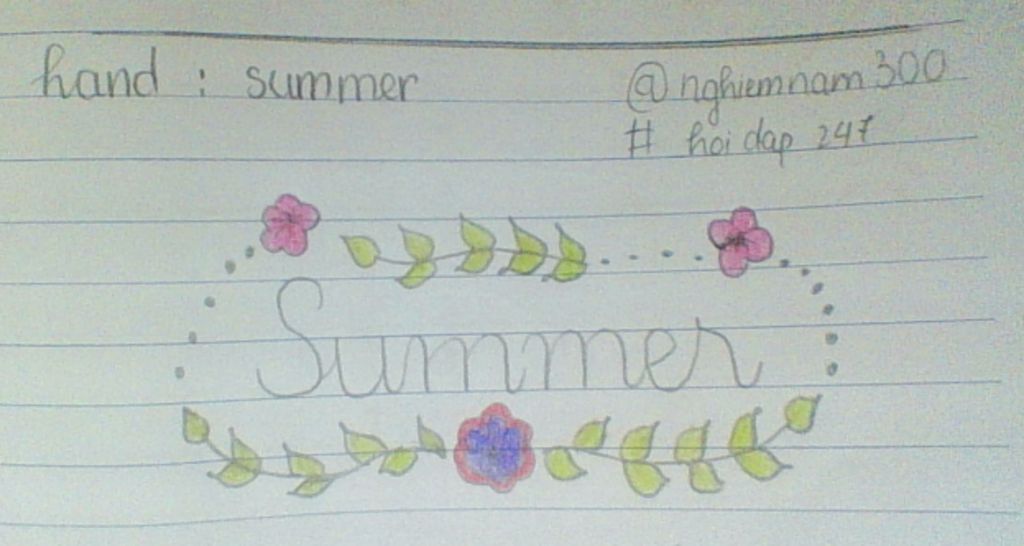 hand : summer
@nghiemnam300
# hoi dap 247
Summer